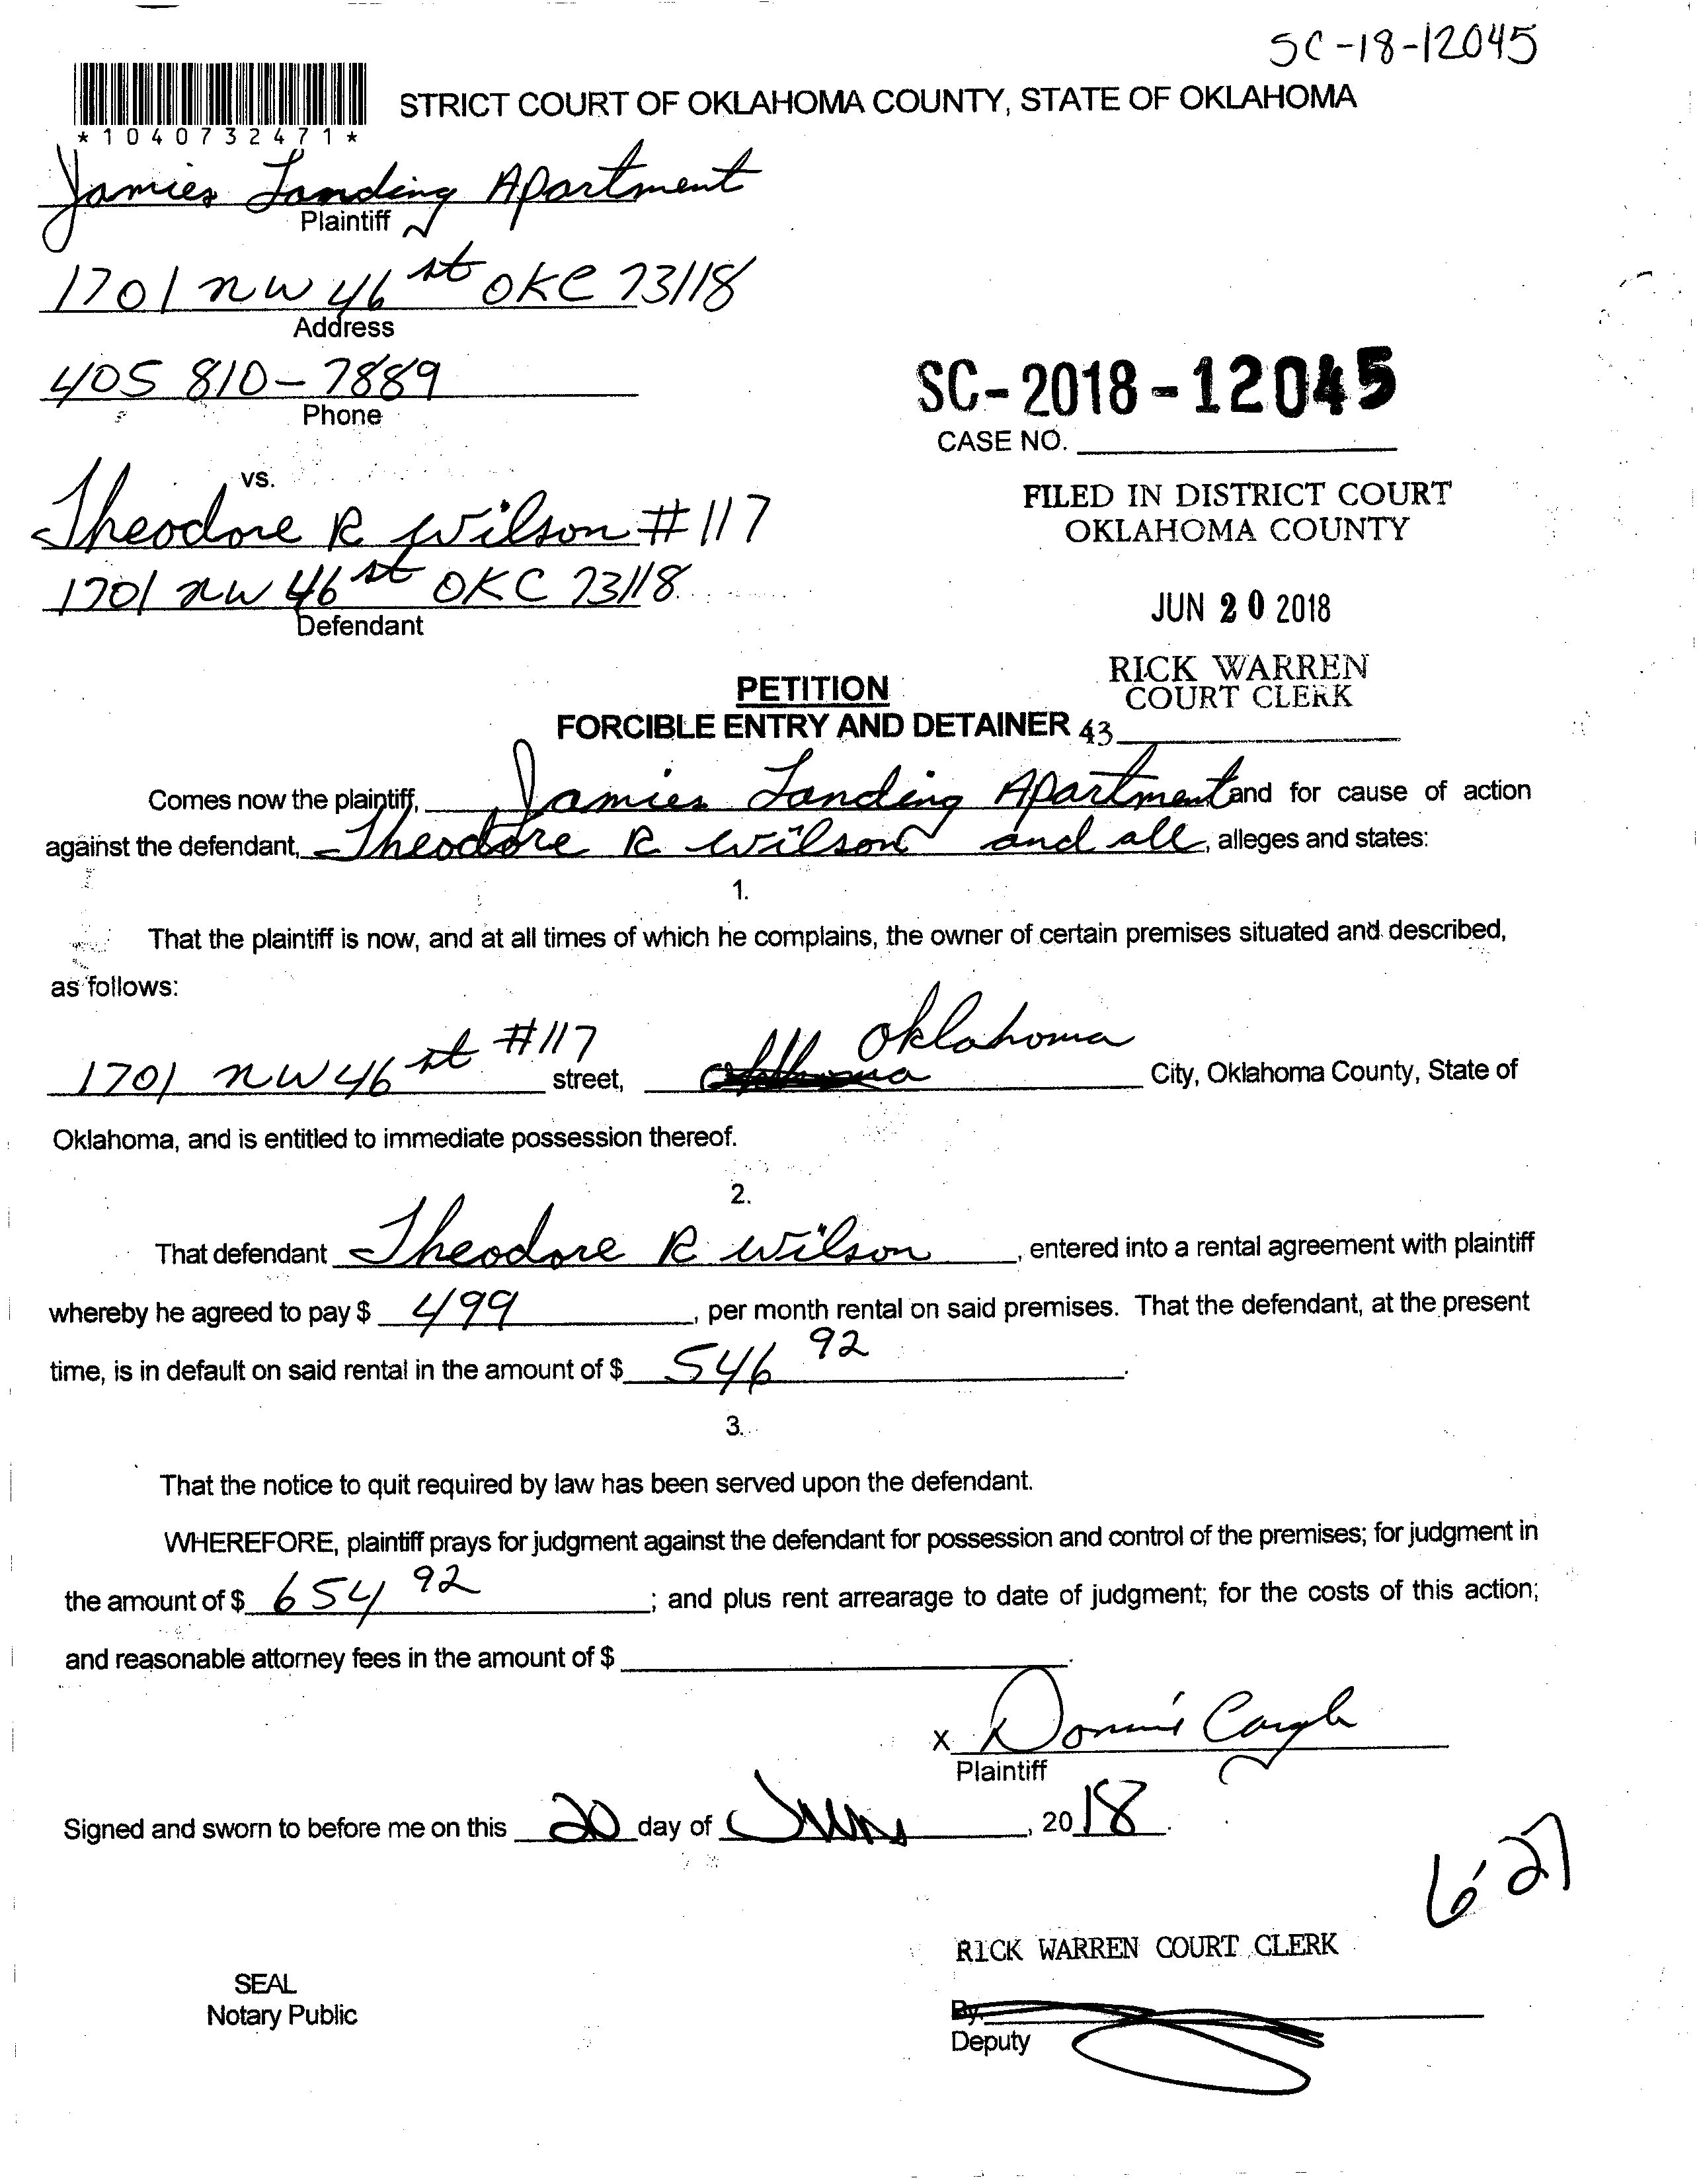 SC-18-12045
STRICT COURT OF OKLAHOMA COUNTY, STATE OF OKLAHOMA
*1040732471*
Jamies Landing Apartment
Plaintiff
1701 NW 46 st OKC 73118
Address
405 810-7889
Phone
SC-2018-12045
CASE NO.
vs.
Theodore R Wilson #117
1701 NW 46 st OKC 73118
Defendant
FILED IN DISTRICT COURT
OKLAHOMA COUNTY
JUN 20 2018
RICK WARREN
COURT CLERK
43
PETITION
FORCIBLE ENTRY AND DETAINER
Comes now the plaintiff, Jamies Landing Apartment and for cause of action
against the defendant, Theodore R Wilson and all, alleges and states:
1.
That the plaintiff is now, and at all times of which he complains, the owner of certain premises situated and described,
as follows:
1701 NW 46 st #117 street, Oklahoma City, Oklahoma County, State of
Oklahoma, and is entitled to immediate possession thereof.
2.
That defendant Theodore R Wilson, entered into a rental agreement with plaintiff
whereby he agreed to pay $ 499, per month rental on said premises. That the defendant, at the present
time, is in default on said rental in the amount of $ 546 92.
3.
That the notice to quit required by law has been served upon the defendant.
WHEREFORE, plaintiff prays for judgment against the defendant for possession and control of the premises; for judgment in
the amount of $ 654 92; and plus rent arrearage to date of judgment; for the costs of this action;
and reasonable attorney fees in the amount of $ .
X
Plaintiff
Signed and sworn to before me on this 20 day of June, 2018.
6-27
RICK WARREN COURT CLERK
SEAL
Notary Public
By
Deputy